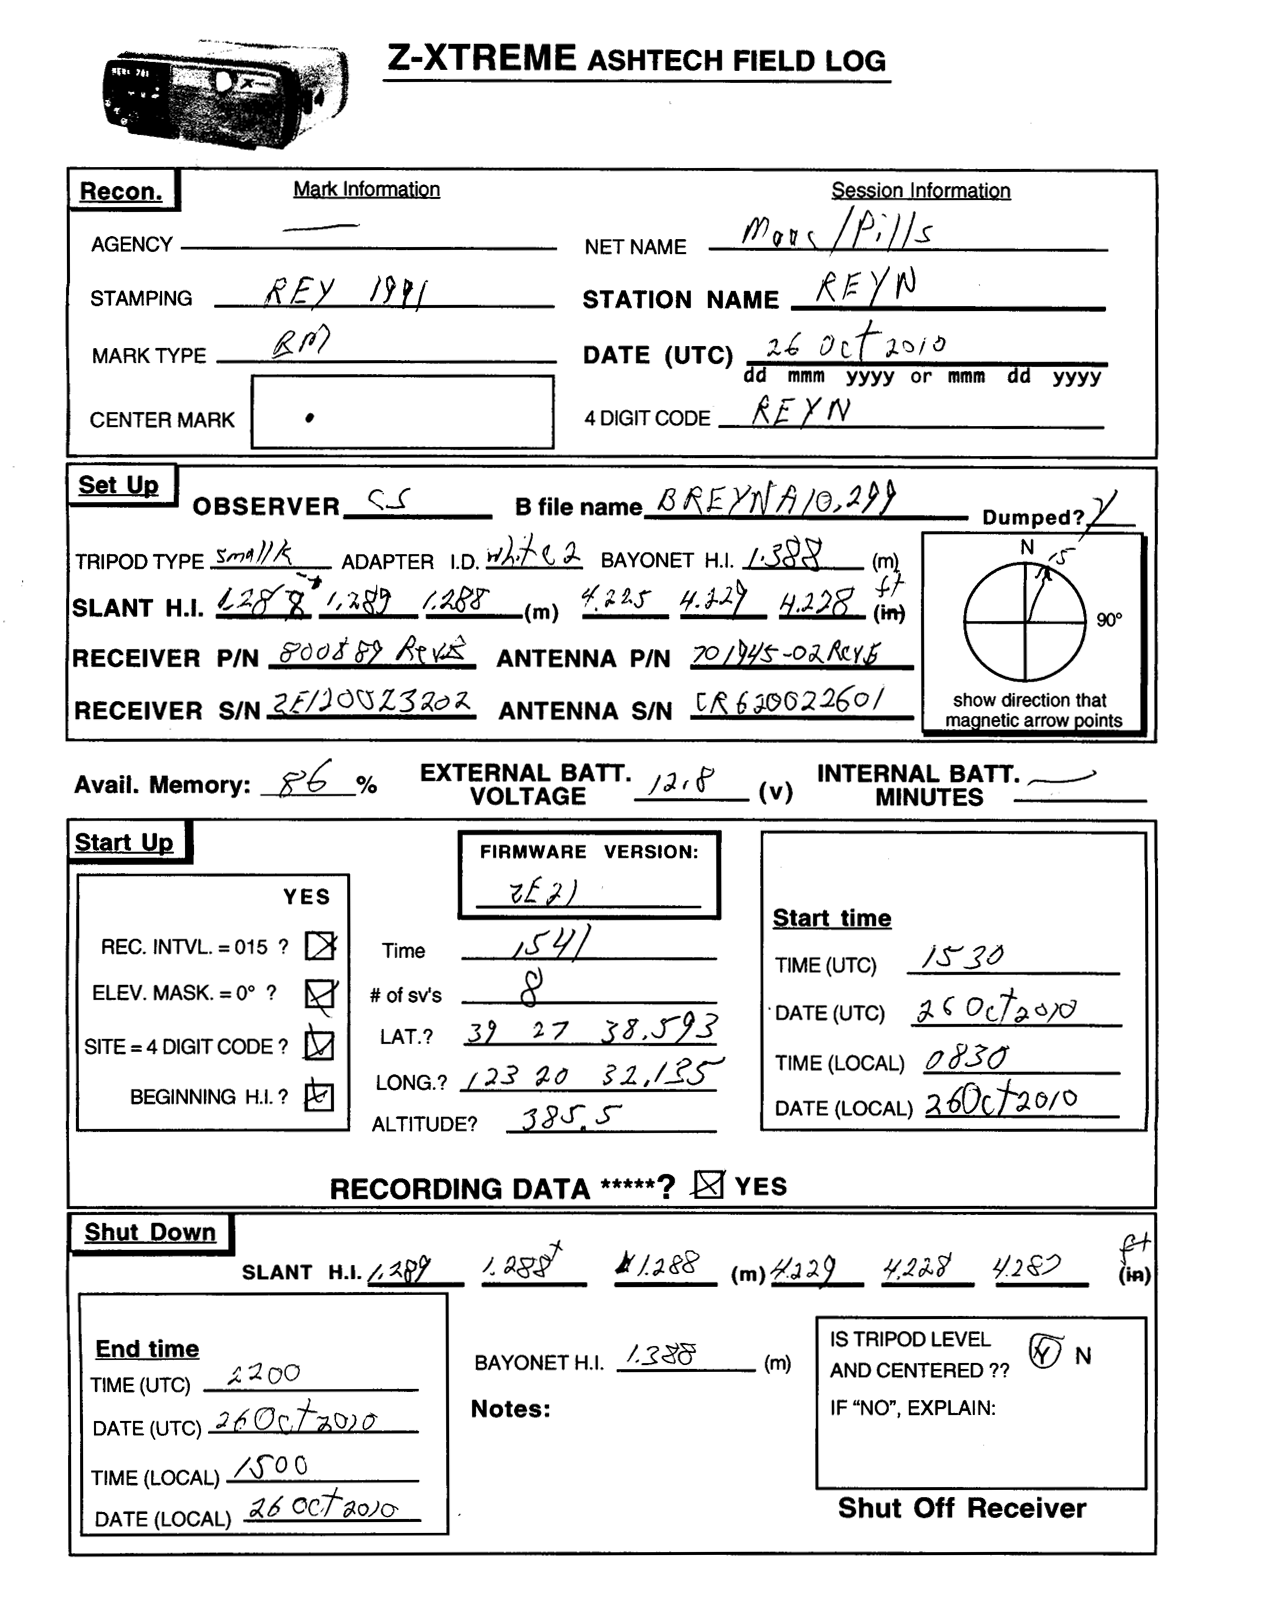 Z-XTREME ASHTECH FIELD LOG
Recon. Mark Information Session Information
AGENCY — NET NAME /Pills
STAMPING REY 1991 STATION NAME REYN
MARK TYPE BM DATE (UTC) 26 Oct 2010
dd mmm yyyy or mmm dd yyyy
CENTER MARK 4 DIGIT CODE REYN
Set Up OBSERVER CS B file name BREYNA10.299 Dumped? Y
TRIPOD TYPE small k ADAPTER I.D. white 2 BAYONET H.I. 1.388 (m)
N 15
90°
SLANT H.I. 1.288 1.289 1.288 (m) 4.225 4.229 4.228 ft (in)
RECEIVER P/N 800889 Rev ANTENNA P/N 701945-02 Rev E
RECEIVER S/N ZE120023202 ANTENNA S/N CR620022601
show direction that
magnetic arrow points
Avail. Memory: 86 % EXTERNAL BATT. VOLTAGE 12.8 (v) INTERNAL BATT. MINUTES —
Start Up
FIRMWARE VERSION:
ZE21
YES
REC. INTVL. = 015 ? X
ELEV. MASK. = 0° ? X
SITE = 4 DIGIT CODE ?
BEGINNING H.I. ?
Time 1541
# of sv's 8
LAT.? 39 27 38.593
LONG.? 123 20 32.135
ALTITUDE? 385.5
Start time
TIME (UTC) 1530
DATE (UTC) 26 Oct 2010
TIME (LOCAL) 0830
DATE (LOCAL) 26 Oct 2010
RECORDING DATA *****? X YES
Shut Down
SLANT H.I. 1.289 1.288+ 1.288 (m) 4.229 4.228 ft (in)
End time
TIME (UTC) 2200
DATE (UTC) 26 Oct 2010
TIME (LOCAL) 1500
DATE (LOCAL) 26 Oct 2010
BAYONET H.I. 1.388 (m)
Notes:
IS TRIPOD LEVEL
AND CENTERED ?? Y N
IF "NO", EXPLAIN:
Shut Off Receiver